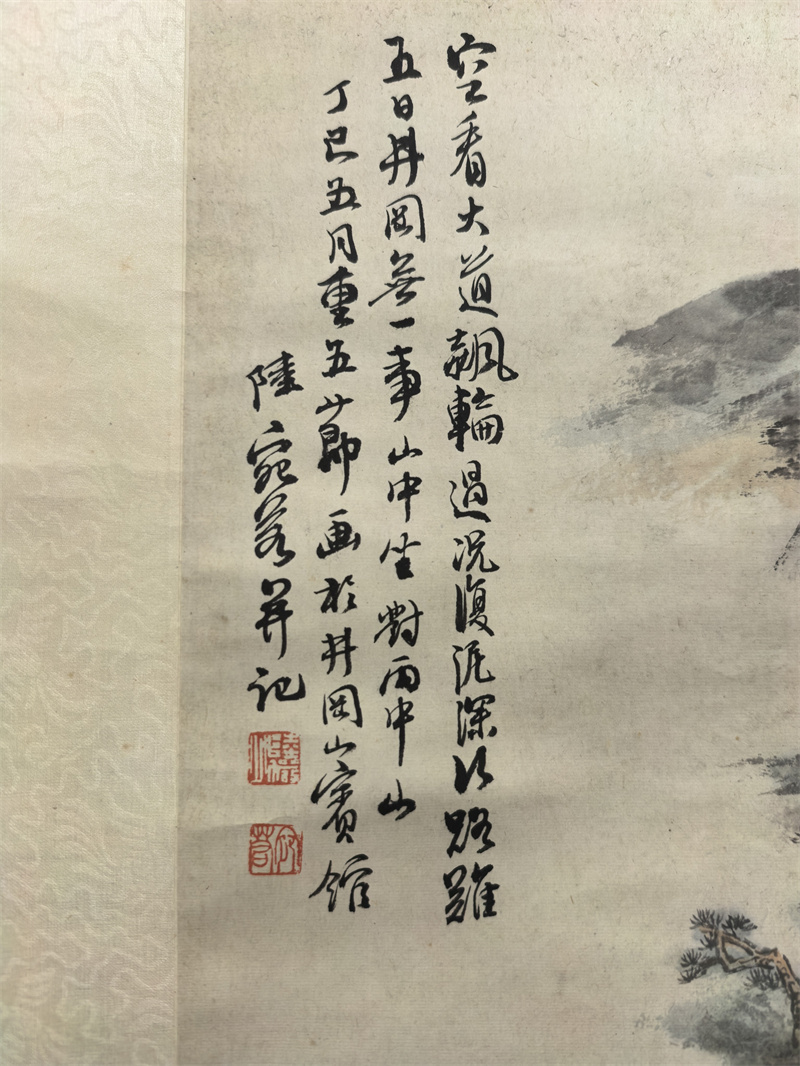 空看大道飆輪過況復泥深行路難
五日井岡無一事山中坐對雨中山
丁巳五月重五節画於井岡山賓館
陸宛若并記